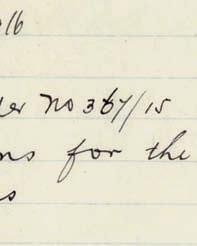 016
er no 367/15
ns for the
s